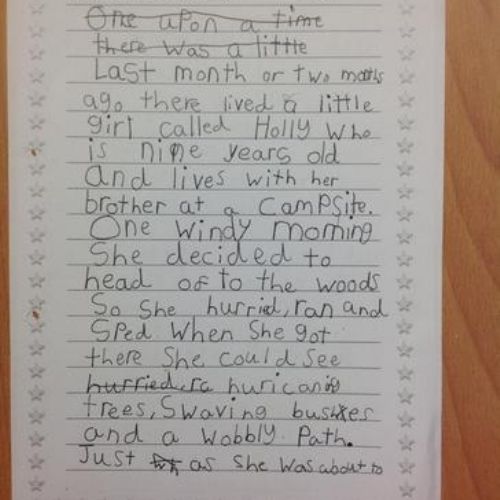 One upon a time
there was a little
Last month or two moths
ago there lived a little
girl called Holly who
is nine years old
and lives with her
brother at a campsite.
One windy morning
She decided to
head of to the woods
So She hurrid, ran and
Sped. When She got
there She could See
hurried, ra huricaning
trees, Swaving bushes
and a wobbly Path.
Just as She was about to